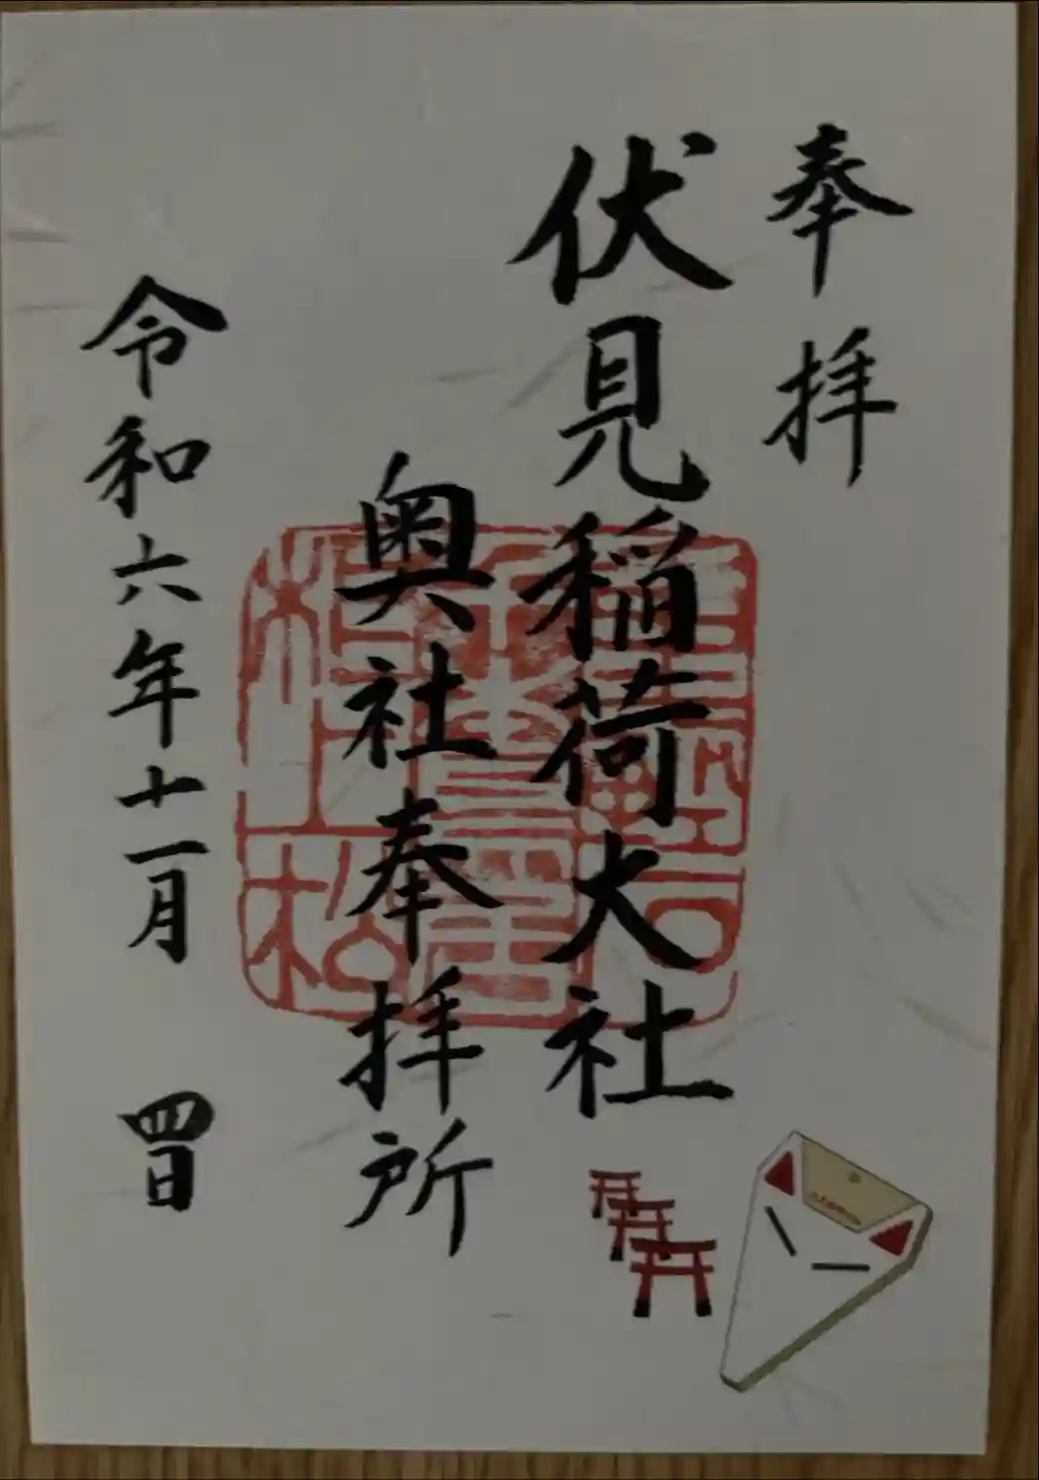 奉拝
伏見稲荷大社
奥社奉拝所
令和六年十一月 四日